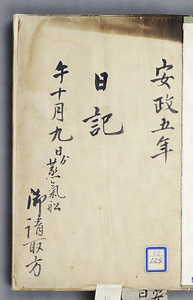 安政五年
日記
午十月九日ゟ蒸氣船
御請取方